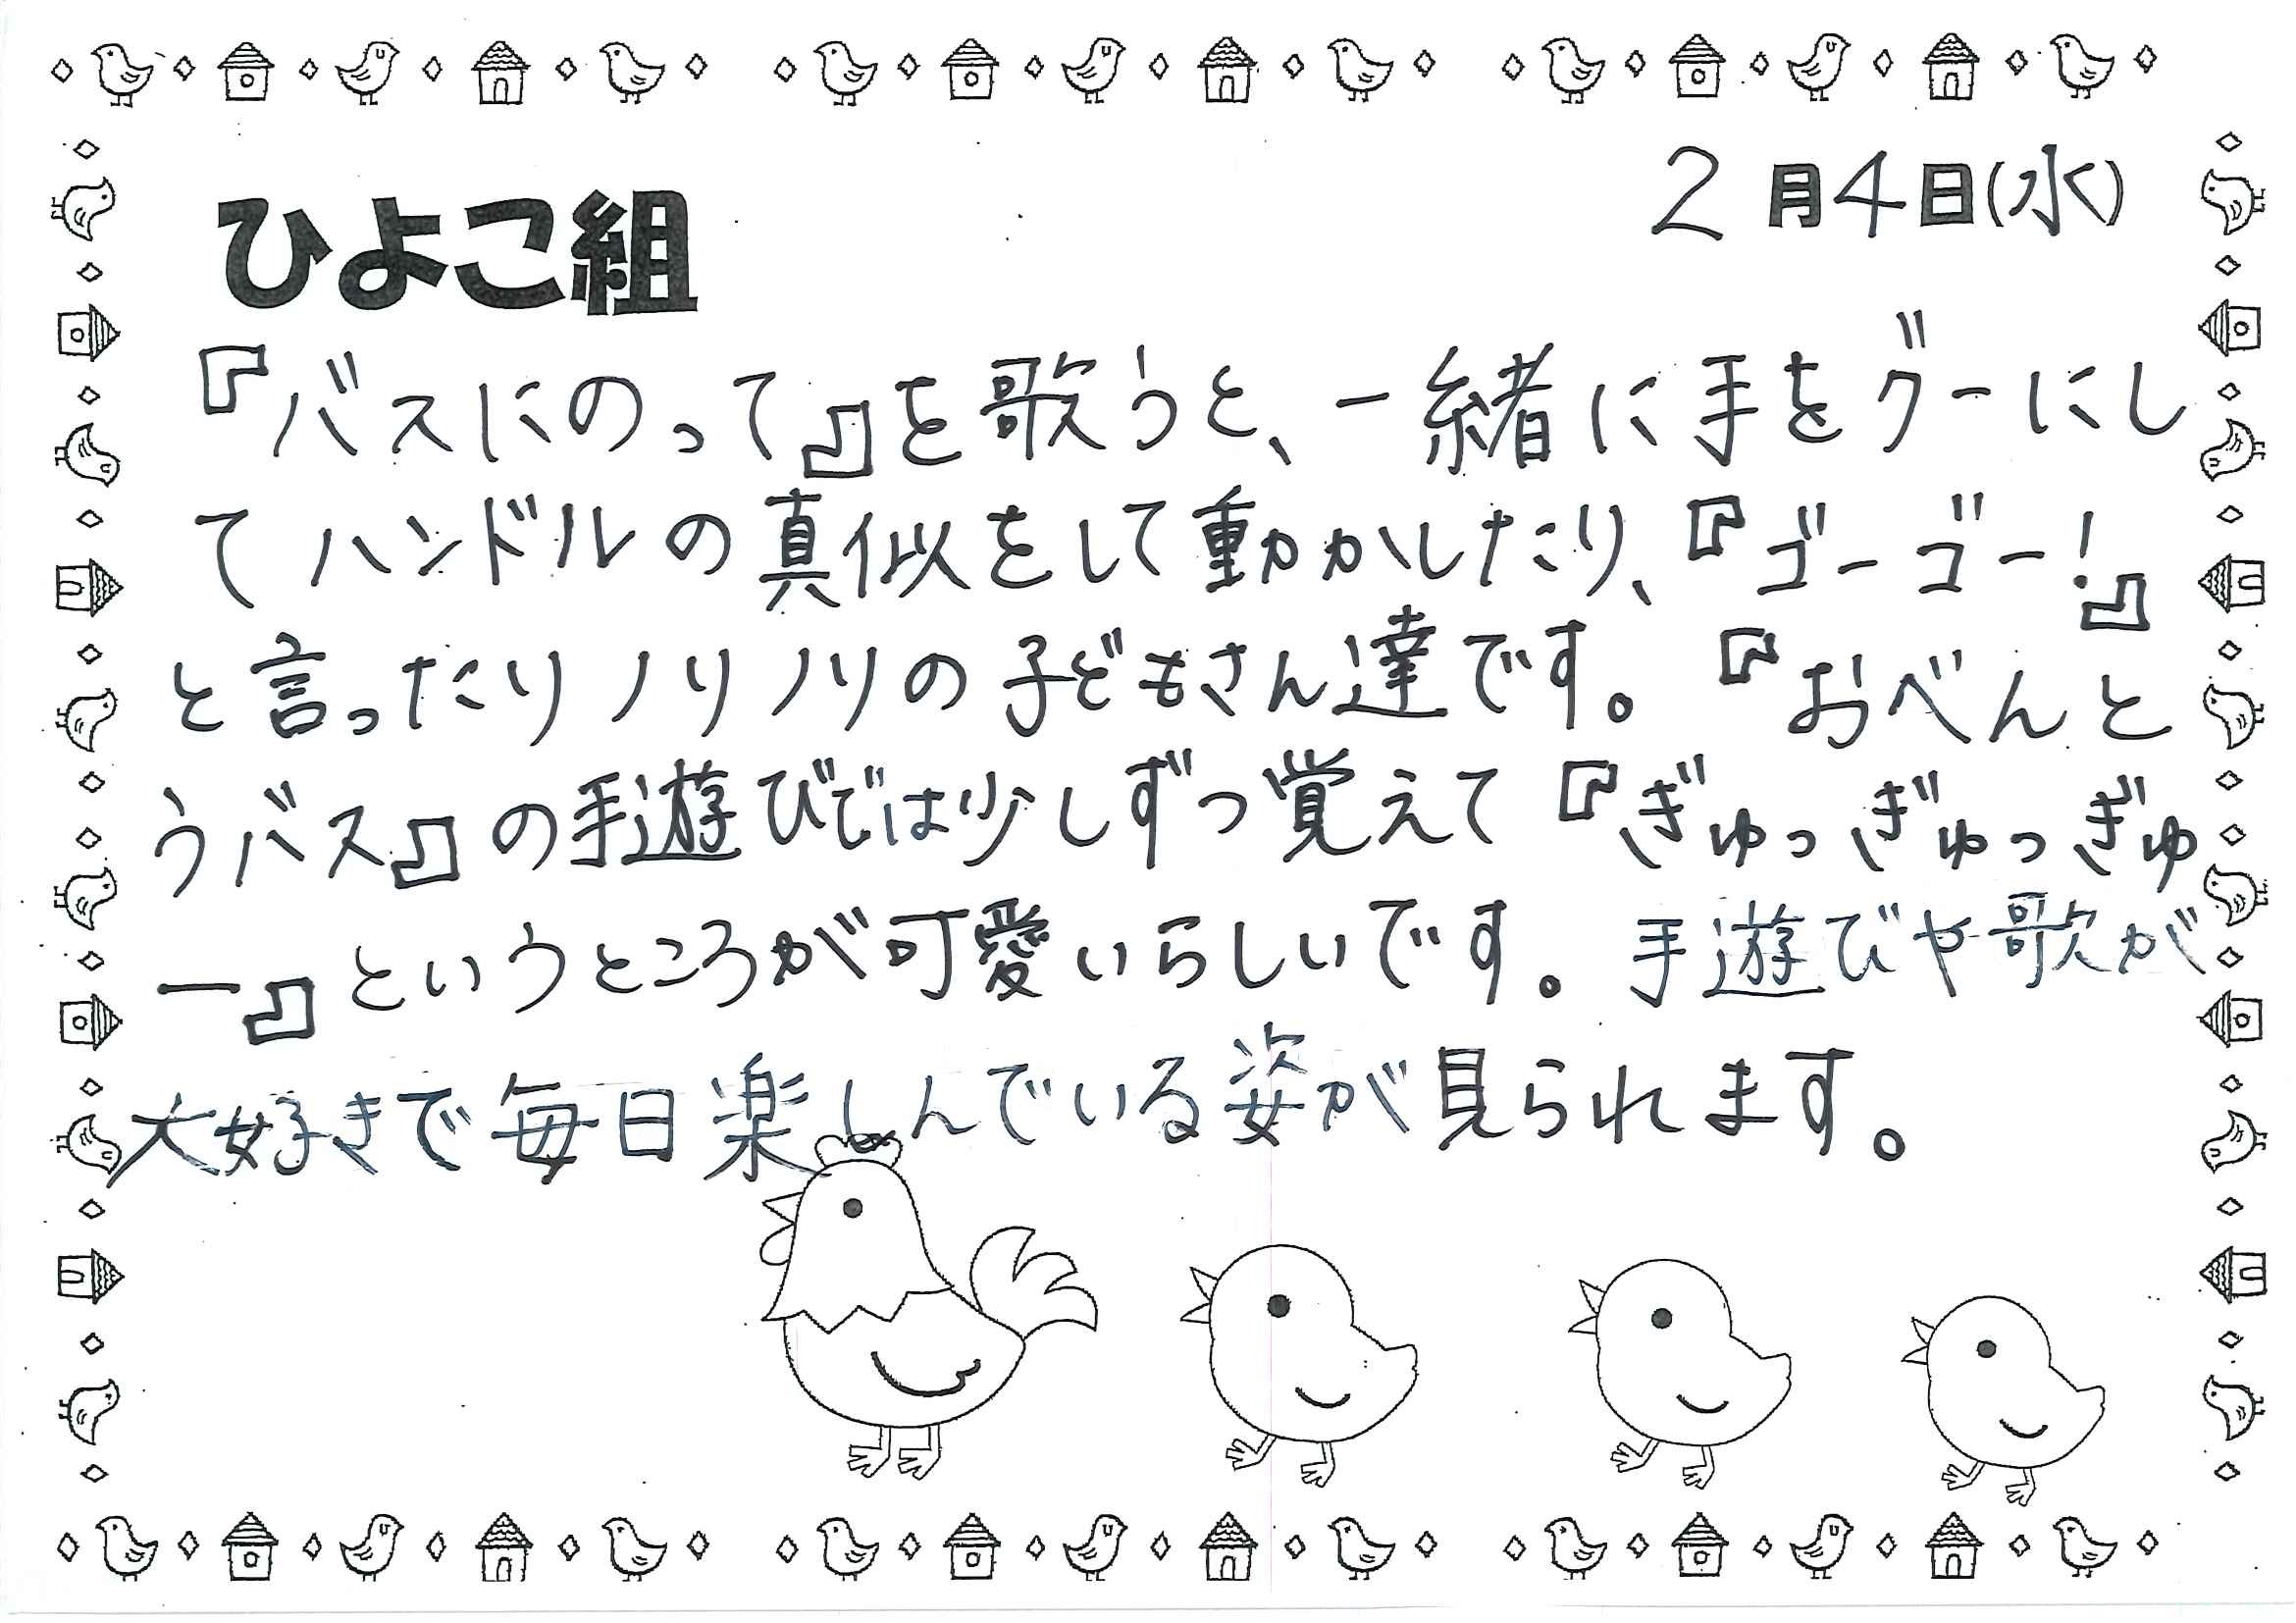 2月4日(水)
ひよこ組
『バスにのって』を歌うと、一緒に手をグーにし
てハンドルの真似をして動かしたり、『ゴーゴー!』
と言ったりノリノリの子どもさん達です。『おべんと
うバス』の手遊びでは少しずつ覚えて『ぎゅっぎゅっぎゅ
ー』というところが可愛いらしいです。手遊びや歌が
大好きで毎日楽しんでいる姿が見られます。